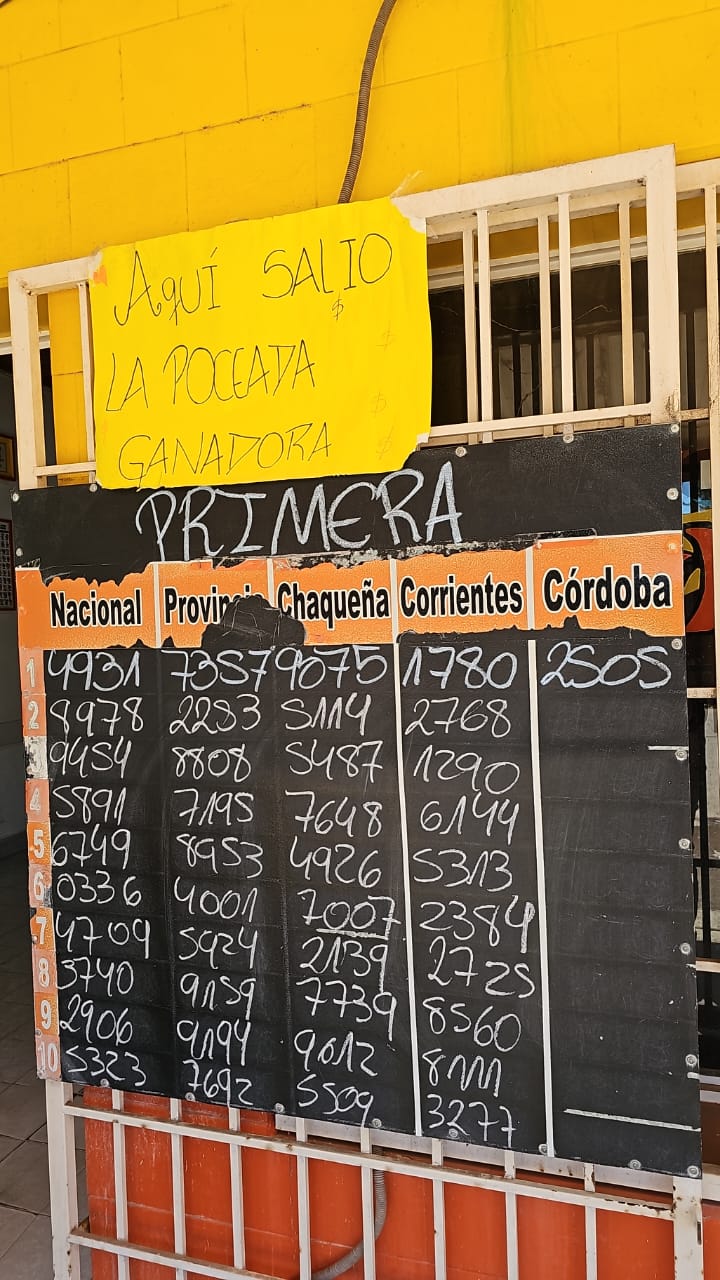 Aquí SALIO
$
LA POCEADA $
$
GANADORA $
PRIMERA
Nacional Provincia Chaqueña Corrientes Córdoba
1 4931 7357 9075 1780 2505
2 8978 2253 5114 2768
9454 8808 5487 1290
4 5891 7195 7648 6144
5 6749 8953 4926 5313
6 0336 4001 7007 2384
7 4709 5924 2139 2725
8 3740 9159 7739 8560
9 2906 9194 9012 8111
10 5323 7692 5509 3277